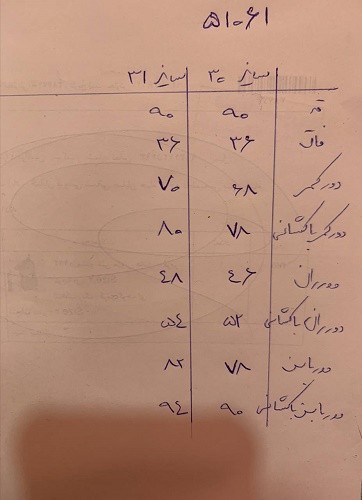 ۵۱۰۶۱
سایز ۳۰ سایز ۳۱
قد ۹۰ ۹۰
فاق ۳۶ ۳۶
دور کمر ۶۸ ۷۰
دور کمر با کشسانی ۷۸ ۸۰
دور ران ۴۶ ۴۸
دور ران با کشسانی ۵۲ ۵۴
دور باسن ۷۸ ۸۲
دور باسن با کشسانی ۹۰ ۹۴